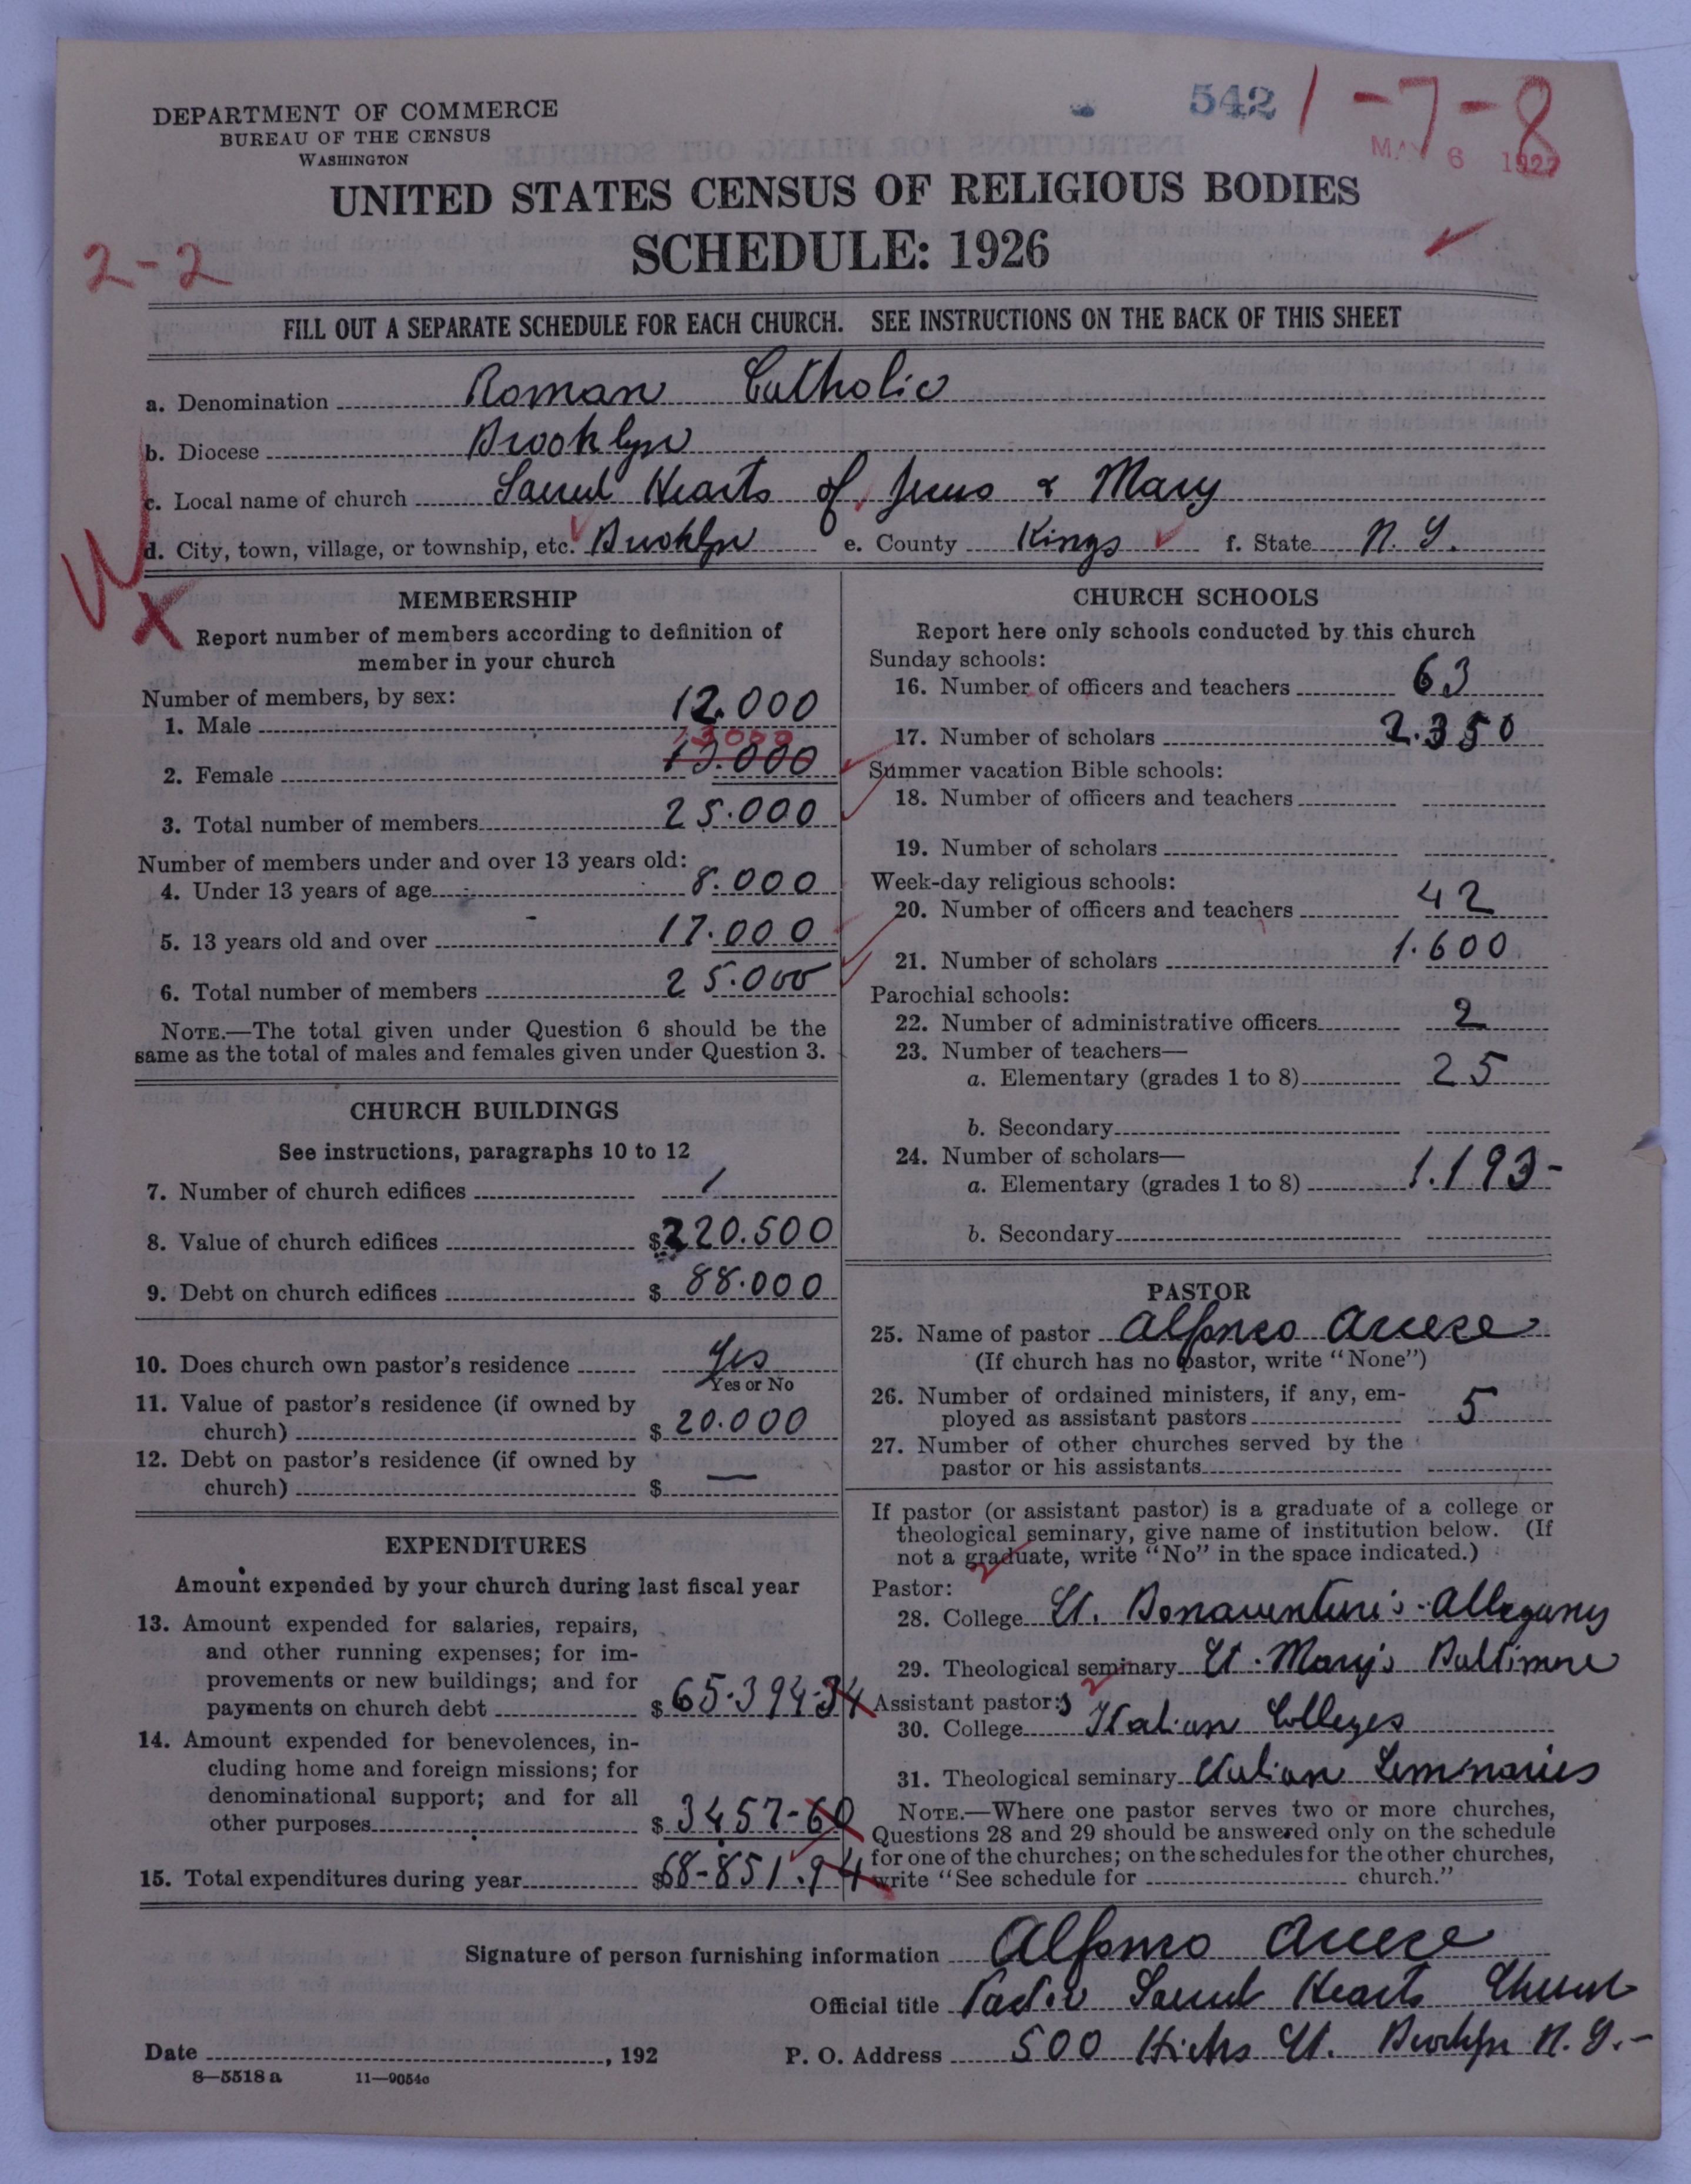 DEPARTMENT OF COMMERCE
BUREAU OF THE CENSUS
WASHINGTON
542
1-7-8
MAY 6 1927
UNITED STATES CENSUS OF RELIGIOUS BODIES
SCHEDULE: 1926
2-2
FILL OUT A SEPARATE SCHEDULE FOR EACH CHURCH. SEE INSTRUCTIONS ON THE BACK OF THIS SHEET
a. Denomination Roman Catholic
b. Diocese Brooklyn
c. Local name of church Sacred Hearts of Jesus & Mary
d. City, town, village, or township, etc. Brooklyn e. County Kings f. State N. Y.
MEMBERSHIP
Report number of members according to definition of
member in your church
Number of members, by sex:
1. Male 12.000
13000
2. Female 13.000
3. Total number of members 25.000
Number of members under and over 13 years old:
4. Under 13 years of age 8.000
5. 13 years old and over 17.000
6. Total number of members 25.000
NOTE.—The total given under Question 6 should be the
same as the total of males and females given under Question 3.
CHURCH BUILDINGS
See instructions, paragraphs 10 to 12
7. Number of church edifices 1
8. Value of church edifices $220.500
9. Debt on church edifices $ 88.000
10. Does church own pastor's residence Yes
Yes or No
11. Value of pastor's residence (if owned by
church) $ 20.000
12. Debt on pastor's residence (if owned by
church) $ —
EXPENDITURES
Amount expended by your church during last fiscal year
13. Amount expended for salaries, repairs,
and other running expenses; for im-
provements or new buildings; and for
payments on church debt $ 65.394.34
14. Amount expended for benevolences, in-
cluding home and foreign missions; for
denominational support; and for all
other purposes $ 3457-60
15. Total expenditures during year $68-851.94
CHURCH SCHOOLS
Report here only schools conducted by this church
Sunday schools:
16. Number of officers and teachers 63
17. Number of scholars 2.350
Summer vacation Bible schools:
18. Number of officers and teachers
19. Number of scholars
Week-day religious schools:
20. Number of officers and teachers 42
21. Number of scholars 1.600
Parochial schools:
22. Number of administrative officers 2
23. Number of teachers—
a. Elementary (grades 1 to 8) 25
b. Secondary
24. Number of scholars—
a. Elementary (grades 1 to 8) 1.193-
b. Secondary
PASTOR
25. Name of pastor Alfonso Arcese
(If church has no pastor, write "None")
26. Number of ordained ministers, if any, em-
ployed as assistant pastors 5
27. Number of other churches served by the
pastor or his assistants
If pastor (or assistant pastor) is a graduate of a college or
theological seminary, give name of institution below. (If
not a graduate, write "No" in the space indicated.)
Pastor:
28. College St. Bonaventure's - Allegany
29. Theological seminary St. Mary's Baltimore
Assistant pastor:s
30. College Italian Colleges
31. Theological seminary Italian Seminaries
NOTE.—Where one pastor serves two or more churches,
Questions 28 and 29 should be answered only on the schedule
for one of the churches; on the schedules for the other churches,
write "See schedule for church."
Signature of person furnishing information Alfonso Arcese
Official title Pastor Sacred Hearts Church
Date , 192 P. O. Address 500 Hicks St. Brooklyn N. Y.-
8—5518 a 11—9054c